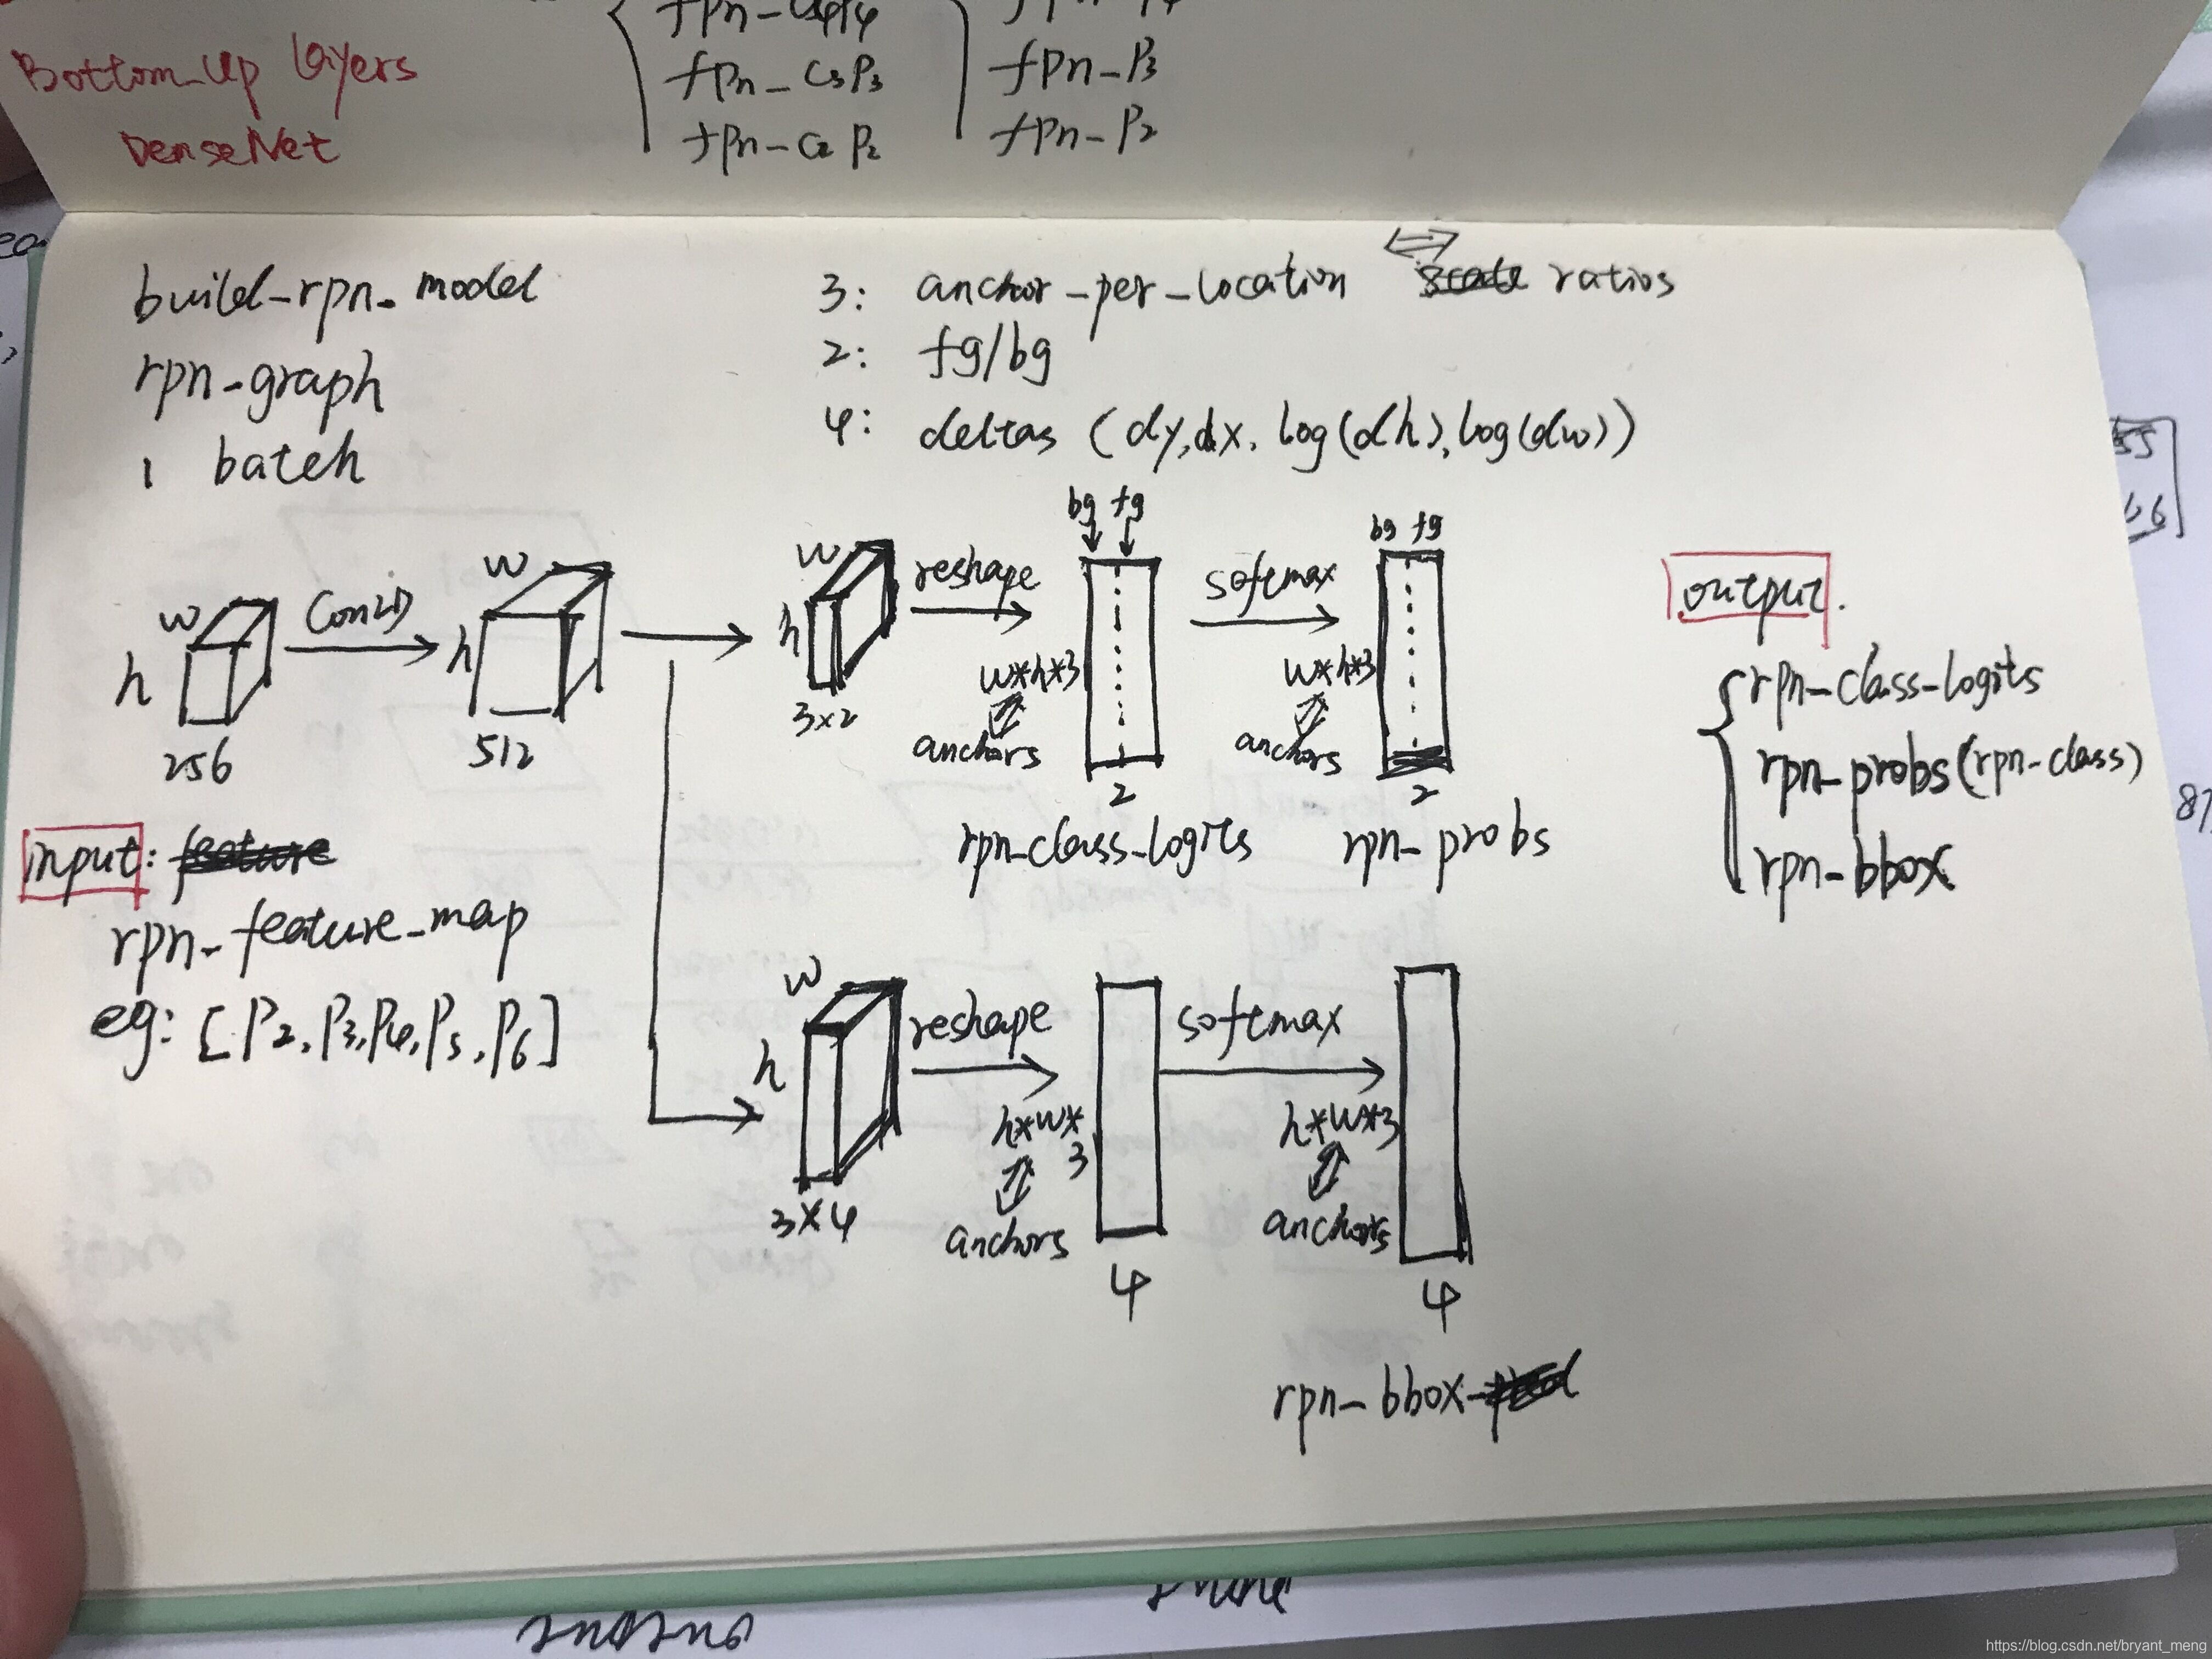 Bottom_up layers
DenseNet
fpn-C3P3
fpn-C2P2
fpn-P3
fpn-P2
build-rpn_model
rpn-graph
1 batch
3: anchor_per_location ratios
2: fg/bg
4: deltas (dy,dx, log(dh), log(dw))
w
h
256
Con2D
w
h
512
w
h
3×2
reshape
bg fg
w*h*3
anchors
2
rpn_class_logits
softmax
bg fg
w*h*3
anchors
2
rpn_probs
output.
rpn-class-logits
rpn-probs(rpn-class)
rpn-bbox
input:
rpn_feature_map
eg: [P2, P3, P4, P5, P6]
w
h
3×4
reshape
h*w*
3
anchors
4
softmax
h*w*3
anchors
4
rpn_bbox
https://blog.csdn.net/bryant_meng